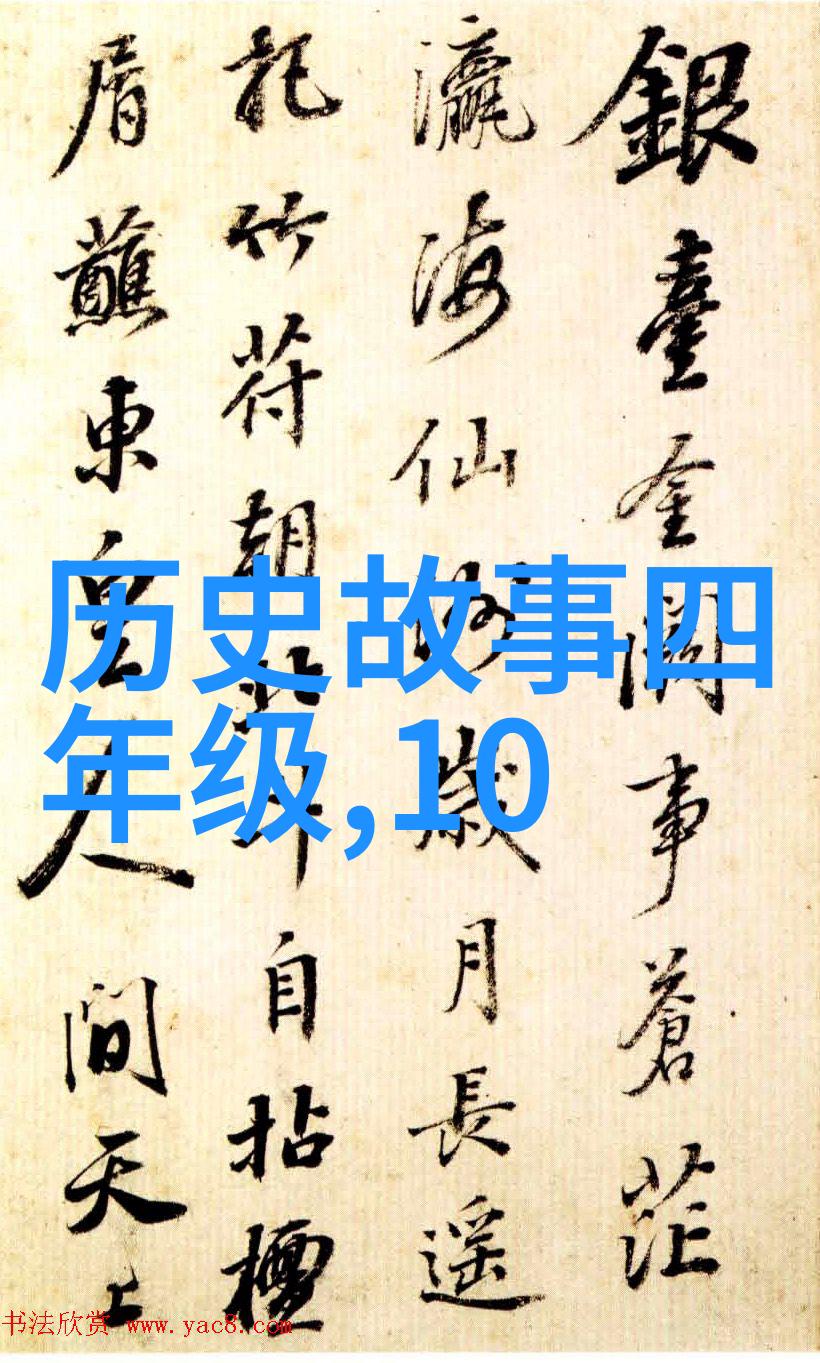 銀臺金闕事蒼茫
瀛海仙洲歲月長遥
託竹符朝北斗自拈檀
屑蘸東皇人間天上
历史故事四
年级,10
书法欣赏 www.yac8.com